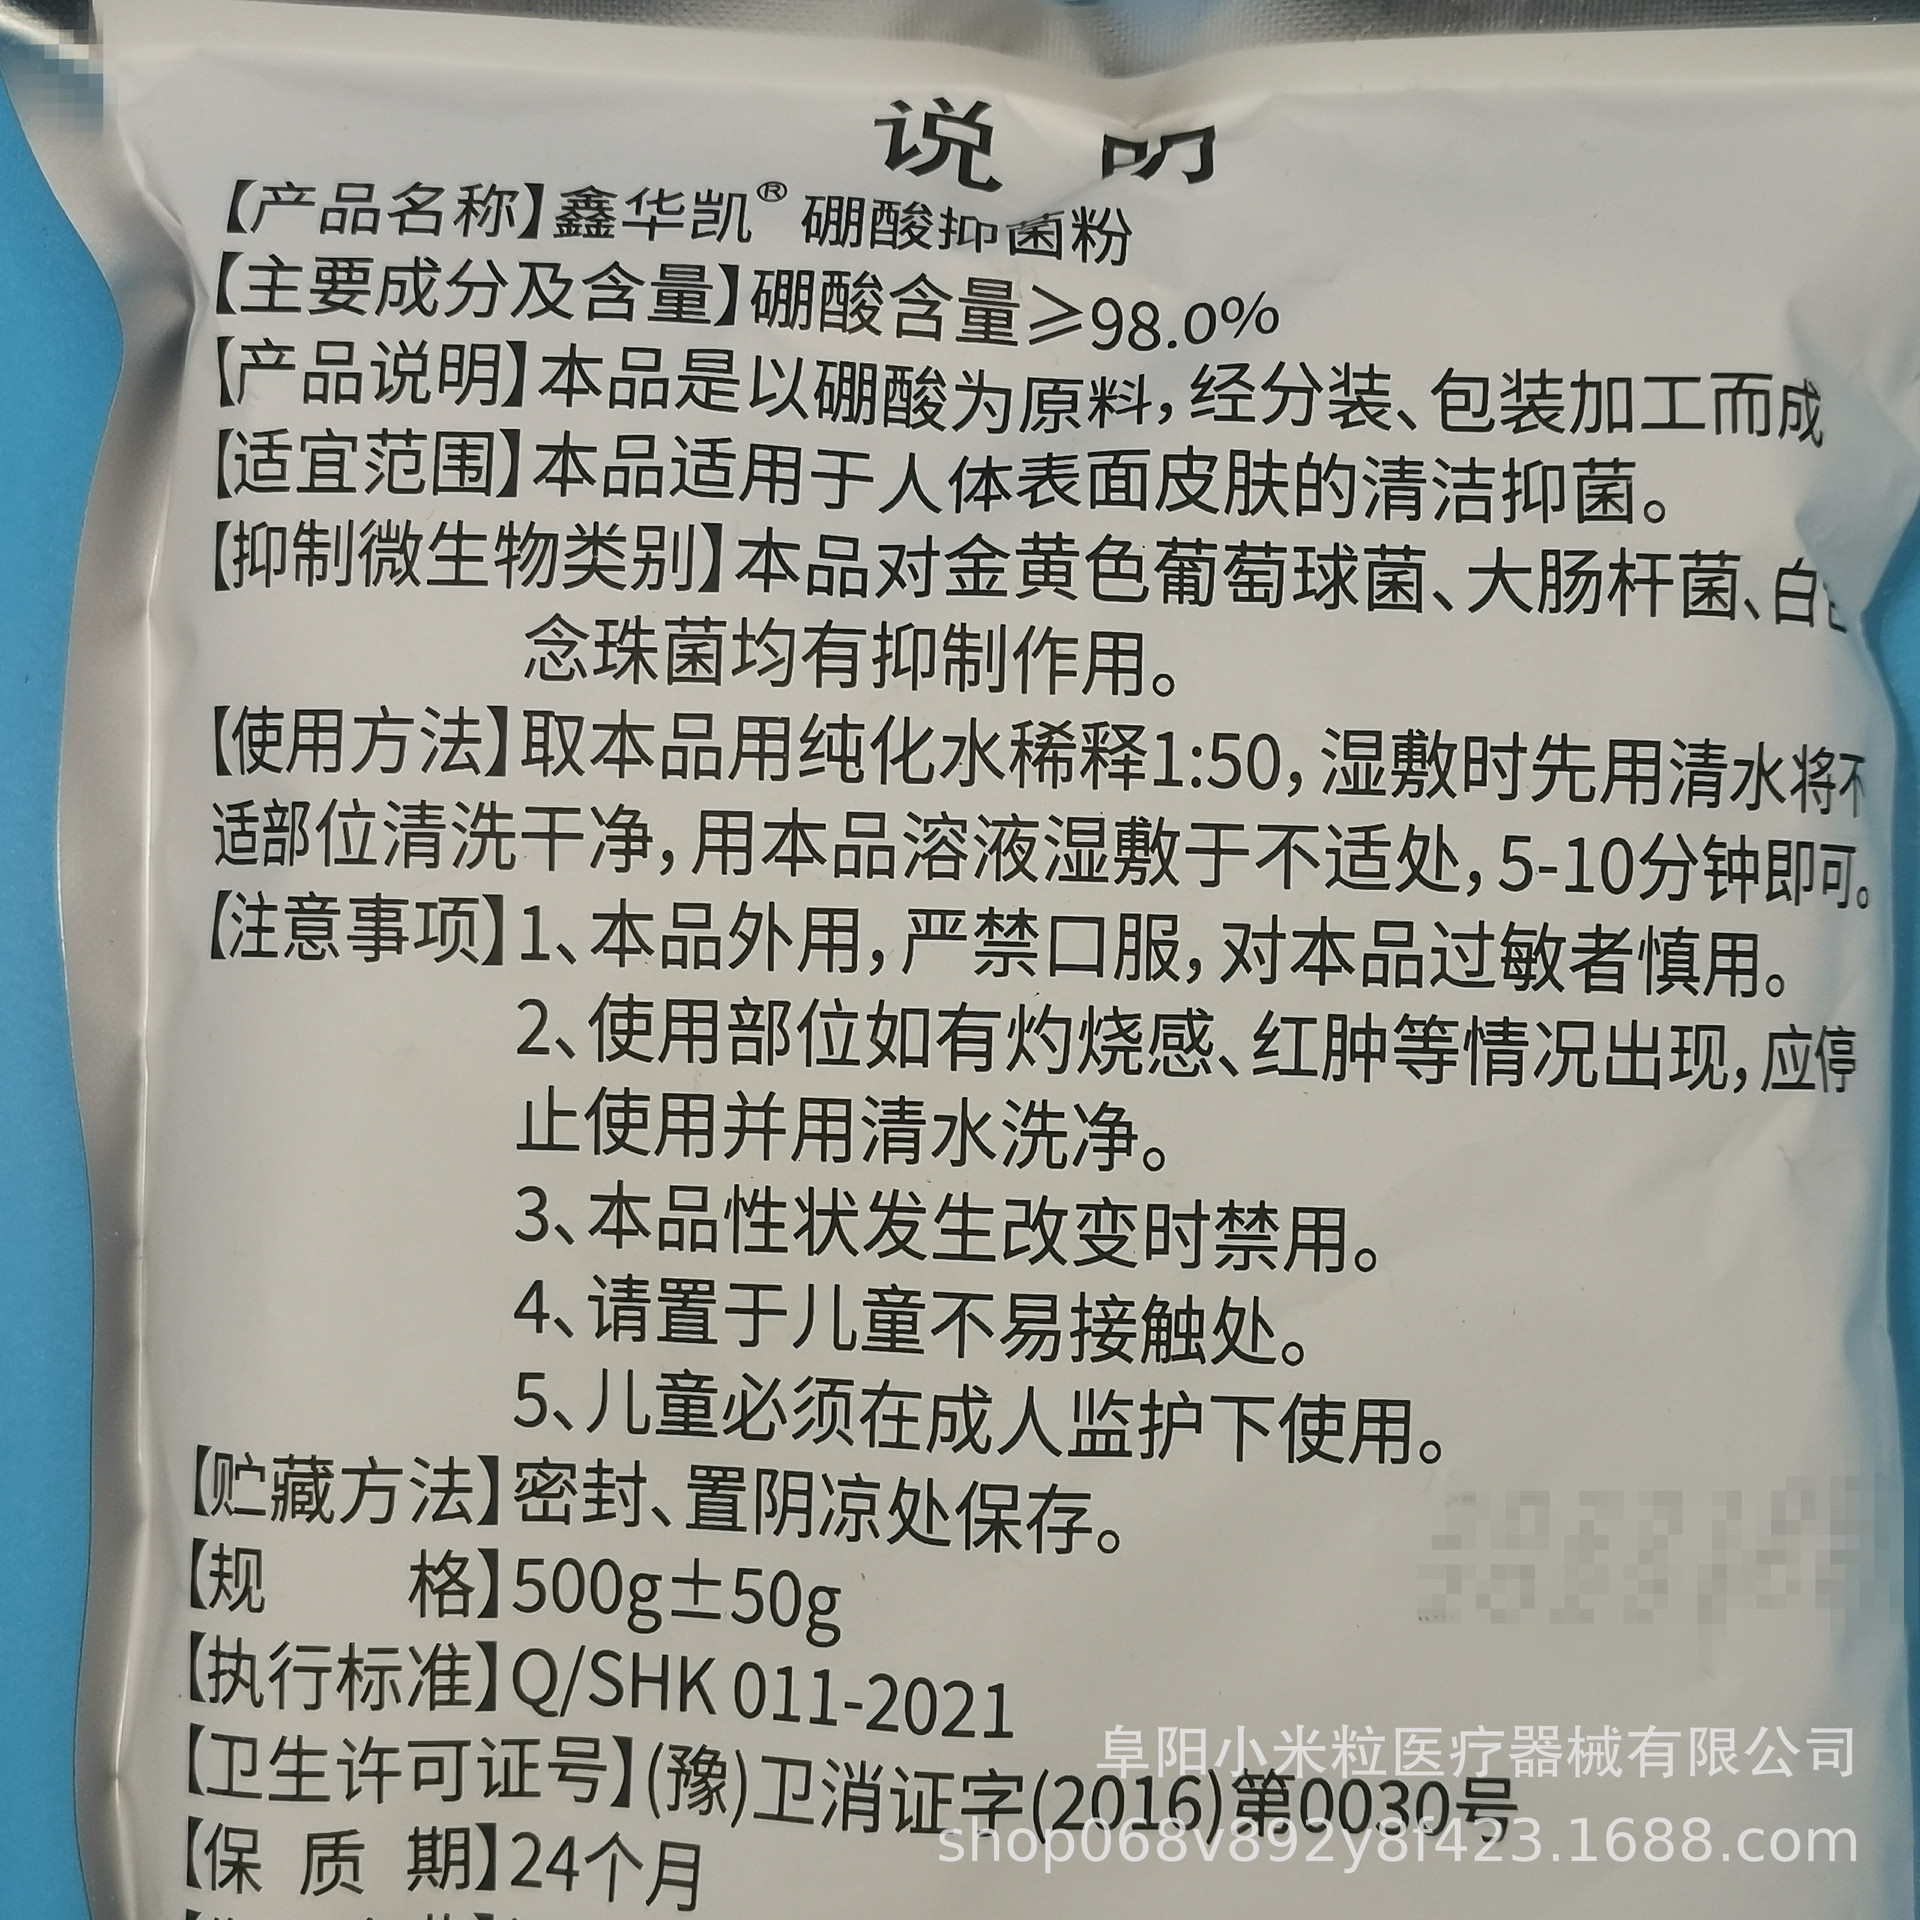 说 明
【产品名称】鑫华凯® 硼酸抑菌粉
【主要成分及含量】硼酸含量≥98.0%
【产品说明】本品是以硼酸为原料，经分装、包装加工而成
【适宜范围】本品适用于人体表面皮肤的清洁抑菌。
【抑制微生物类别】本品对金黄色葡萄球菌、大肠杆菌、白色
念珠菌均有抑制作用。
【使用方法】取本品用纯化水稀释1:50，湿敷时先用清水将不
适部位清洗干净，用本品溶液湿敷于不适处，5-10分钟即可。
【注意事项】1、本品外用，严禁口服，对本品过敏者慎用。
2、使用部位如有灼烧感、红肿等情况出现，应停
止使用并用清水洗净。
3、本品性状发生改变时禁用。
4、请置于儿童不易接触处。
5、儿童必须在成人监护下使用。
【贮藏方法】密封、置阴凉处保存。
【规 格】500g±50g
【执行标准】Q/SHK 011-2021
【卫生许可证号】(豫)卫消证字(2016)第0030号
【保 质 期】24个月
阜阳小米粒医疗器械有限公司
shop068v892y8f423.1688.com